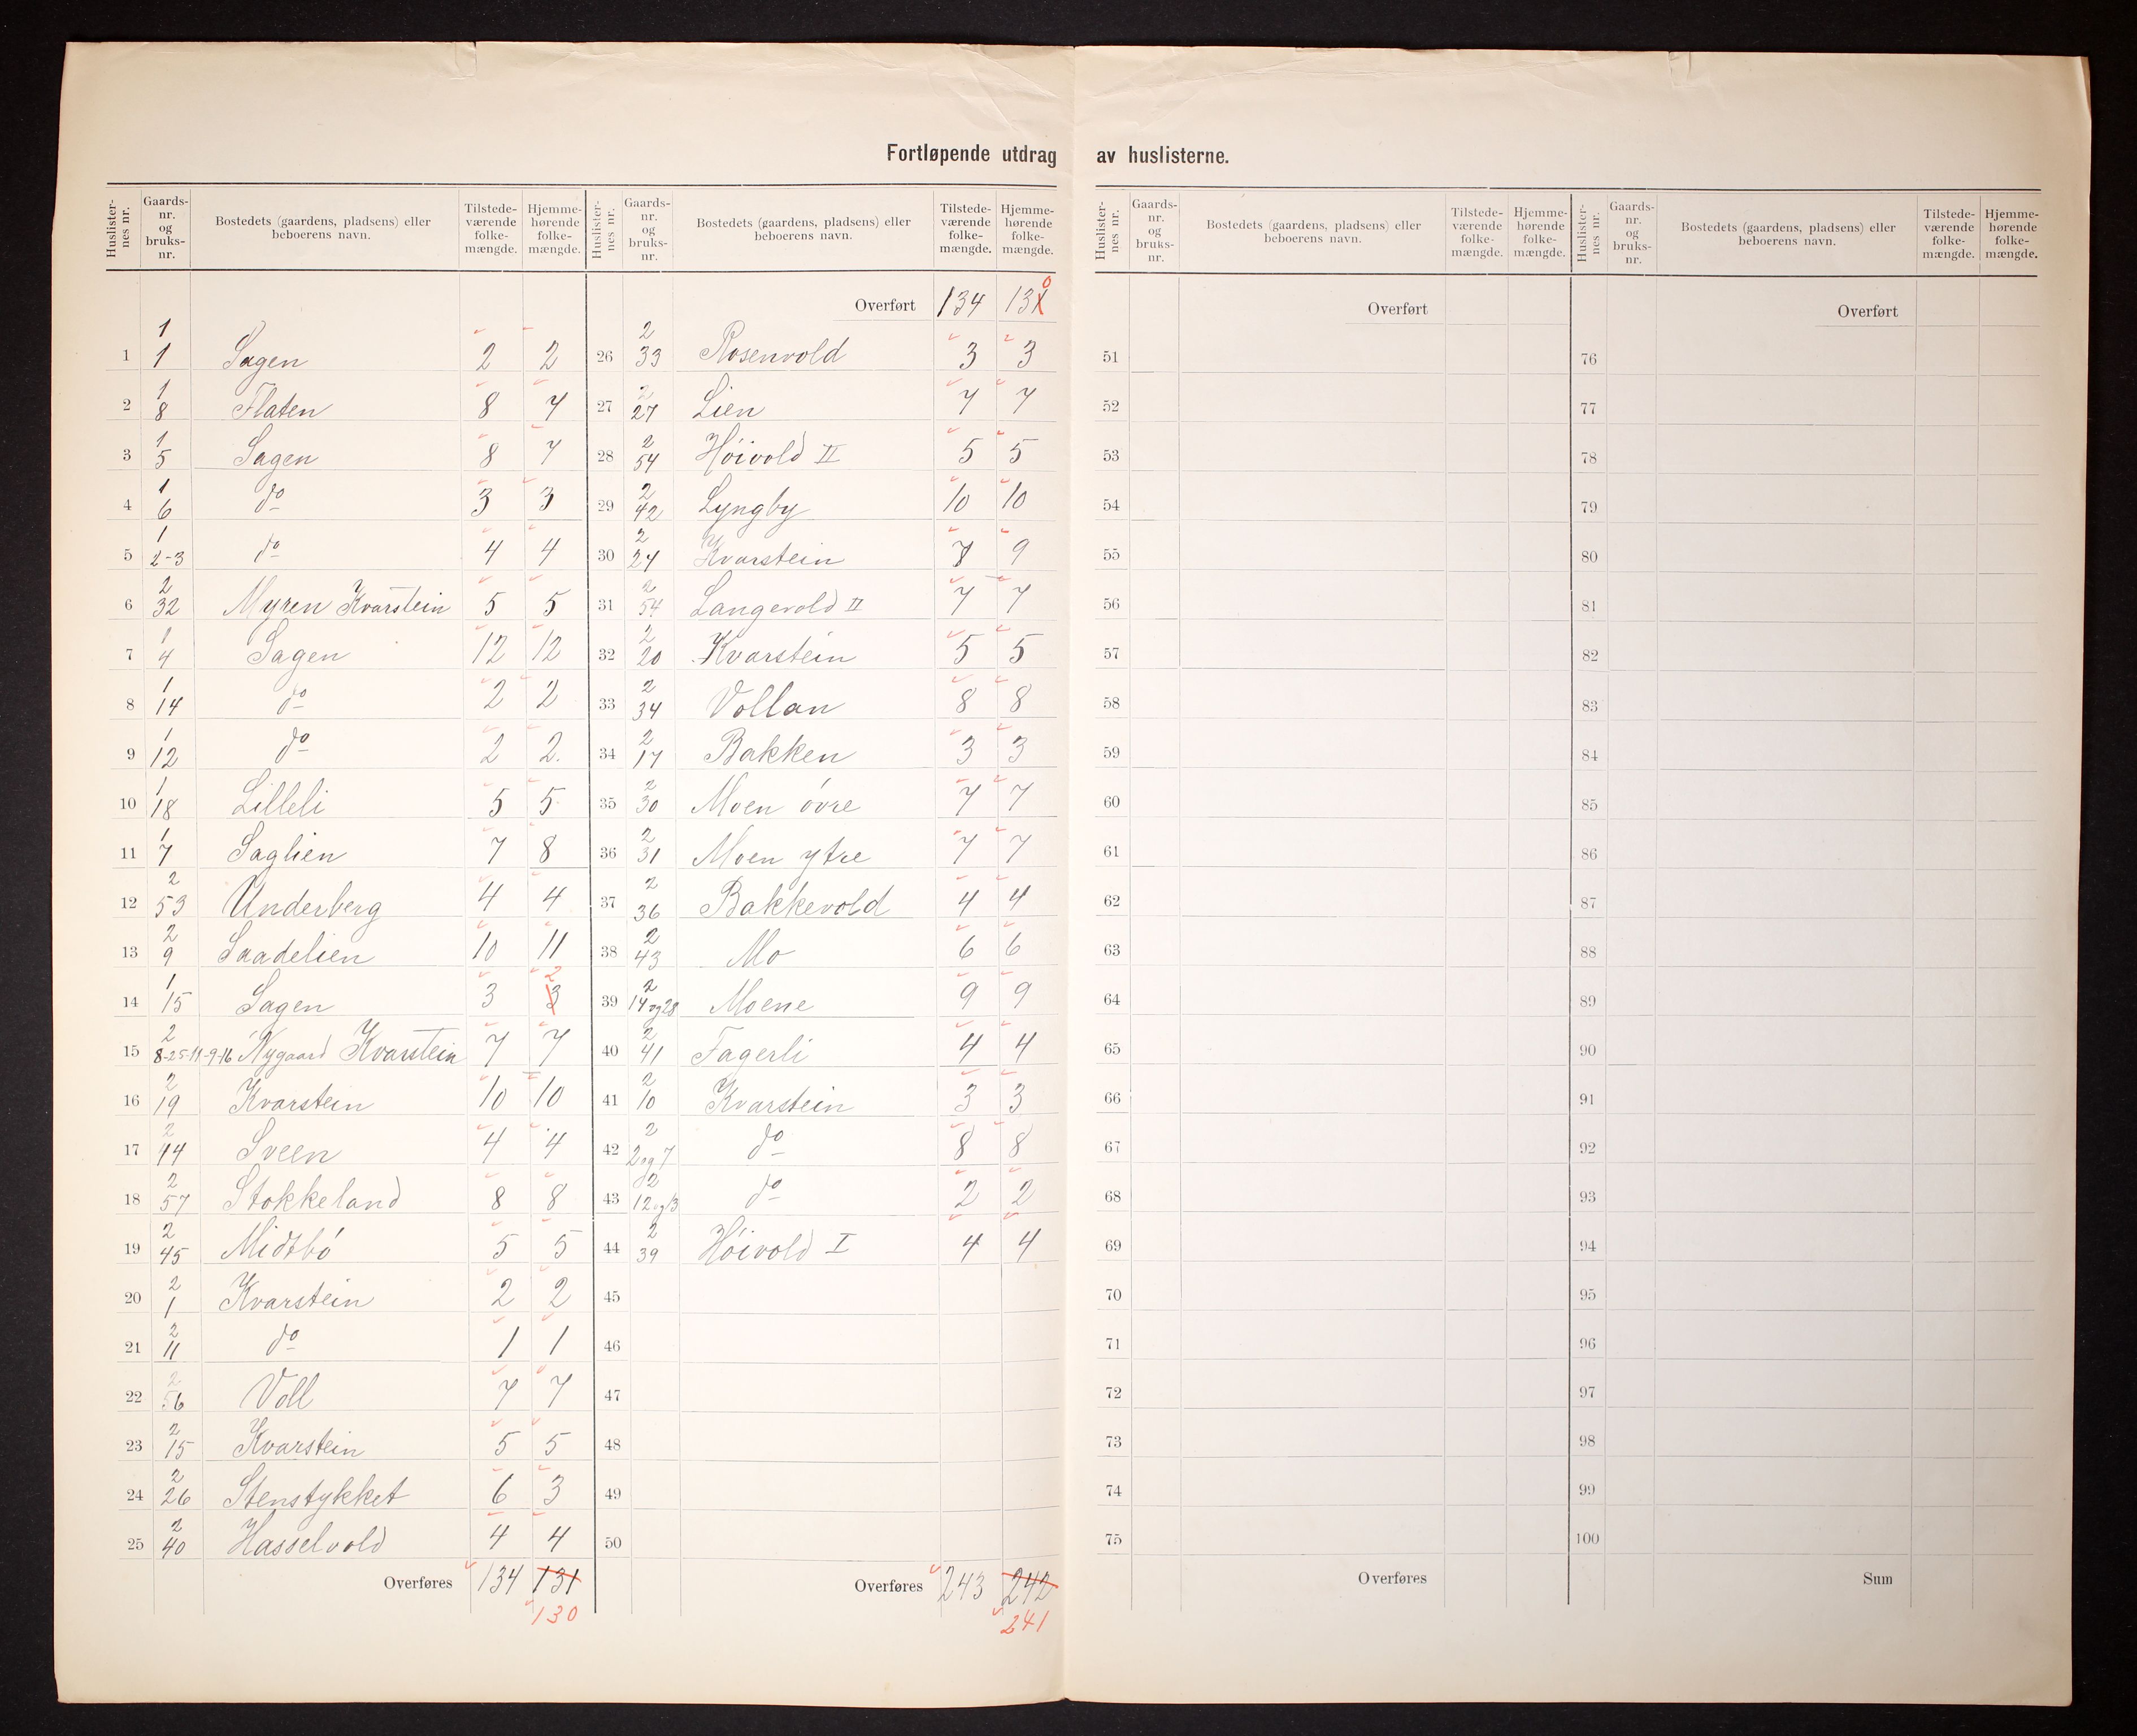 Fortløpende utdrag av huslisterne.
Huslister-nes nr. Gaards-nr. og bruks-nr. Bostedets (gaardens, pladsens) eller beboerens navn. Tilstede-værende folke-mængde. Hjemme-hørende folke-mængde.
1 1/1 Sagen 2 2
2 1/8 Flaten 8 7
3 1/5 Sagen 8 7
4 1/6 do 3 3
5 1/2-3 do 4 4
6 2/32 Myren Kvarstein 5 5
7 1/4 Sagen 12 12
8 1/14 do 2 2
9 1/12 do 2 2.
10 1/18 Lilleli 5 5
11 1/7 Saglien 7 8
12 2/53 Underberg 4 4
13 2/9 Saadelien 10 11
14 1/15 Sagen 3 3 2
15 2/8-25-11-9-16 Nygaard Kvarstein 7 7
16 2/19 Kvarstein 10 10
17 2/44 Sveen 4 4
18 2/57 Stokkeland 8 8
19 2/45 Midtbó 5 5
20 2/1 Kvarstein 2 2
21 2/11 do 1 1
22 2/56 Voll 7 7
23 2/15 Kvarstein 5 5
24 2/26 Stenstykket 6 3
25 2/40 Hasselvold 4 4
Overføres 134 131
130
Huslister-nes nr. Gaards-nr. og bruks-nr. Bostedets (gaardens, pladsens) eller beboerens navn. Tilstede-værende folke-mængde. Hjemme-hørende folke-mængde.
Overført 134 131 0
26 2/33 Rosenvold 3 3
27 2/27 Lien 7 7
28 2/54 Hóivold II 5 5
29 2/42 Lyngby 10 10
30 2/24 Kvarstein 9
31 2/54 Langevold II 7 7
32 2/20 Kvarstein 5 5
33 2/34 Vollan 8 8
34 2/17 Bakken 3 3
35 2/30 Moen óvre 7 7
36 2/31 Moen ytre 7 7
37 2/36 Bakkevold 4 4
38 2/43 Mo 6 6
39 2/14 og 28 Moene 9 9
40 2/41 Fagerli 4 4
41 2/10 Kvarstein 3 3
42 2/2 og 7 do 8 8
43 2/12 og 13 do 2 2
44 2/39 Hóivold I 4 4
45
46
47
48
49
50
Overføres 243 242
241
Huslister-nes nr. Gaards-nr. og bruks-nr. Bostedets (gaardens, pladsens) eller beboerens navn. Tilstede-værende folke-mængde. Hjemme-hørende folke-mængde.
Overført
51
52
53
54
55
56
57
58
59
60
61
62
63
64
65
66
67
68
69
70
71
72
73
74
75
Overføres
Huslister-nes nr. Gaards-nr. og bruks-nr. Bostedets (gaardens, pladsens) eller beboerens navn. Tilstede-værende folke-mængde. Hjemme-hørende folke-mængde.
Overført
76
77
78
79
80
81
82
83
84
85
86
87
88
89
90
91
92
93
94
95
96
97
98
99
100
Sum